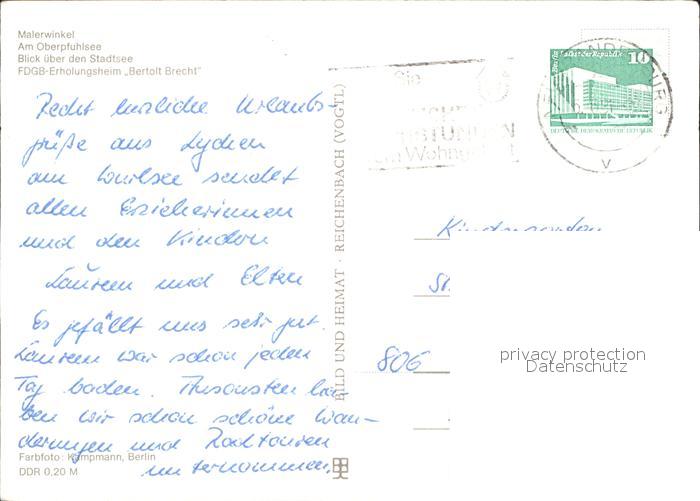 Malerwinkel
Am Oberpfuhlsee
Blick über den Stadtsee
FDGB-Erholungsheim „Bertolt Brecht"
Recht herzliche Urlaubs-
grüße aus Lychen
am Wurlsee sendet
allen Erzieherinnen
und den Kindern
Laureen und Eltern
Es gefällt uns sehr gut.
Laureen war schon jeden
Tag baden. Ansonsten ha-
ben wir schon schöne Wan-
derungen und Radtouren
unternommen.
Farbfoto: Kampmann, Berlin
DDR 0,20 M
BILD UND HEIMAT · REICHENBACH (VOGTL)
Sie
STUNDEN
im Wohngebiet
Palast der Republik 10
DEUTSCHE DEMOKRATISCHE REPUBLIK
V
806
privacy protection
Datenschutz